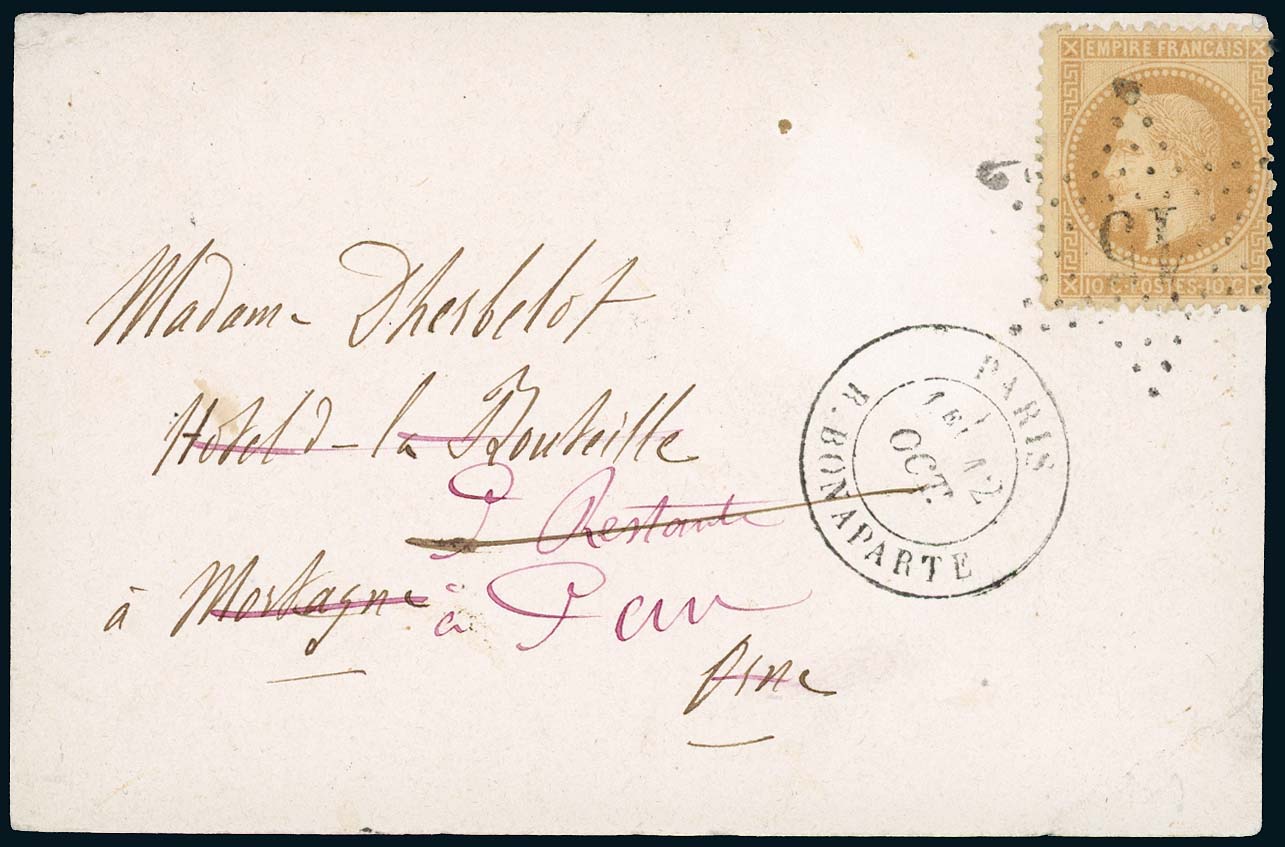 EMPIRE FRANCAIS
15
10 C. POSTES. 10 C
PARIS
R. BONAPARTE
1E/
12
OCT.
Madame Dherbelot
Hotel d la Bouteille
P Restante
à Mortagne à Pau
Orne